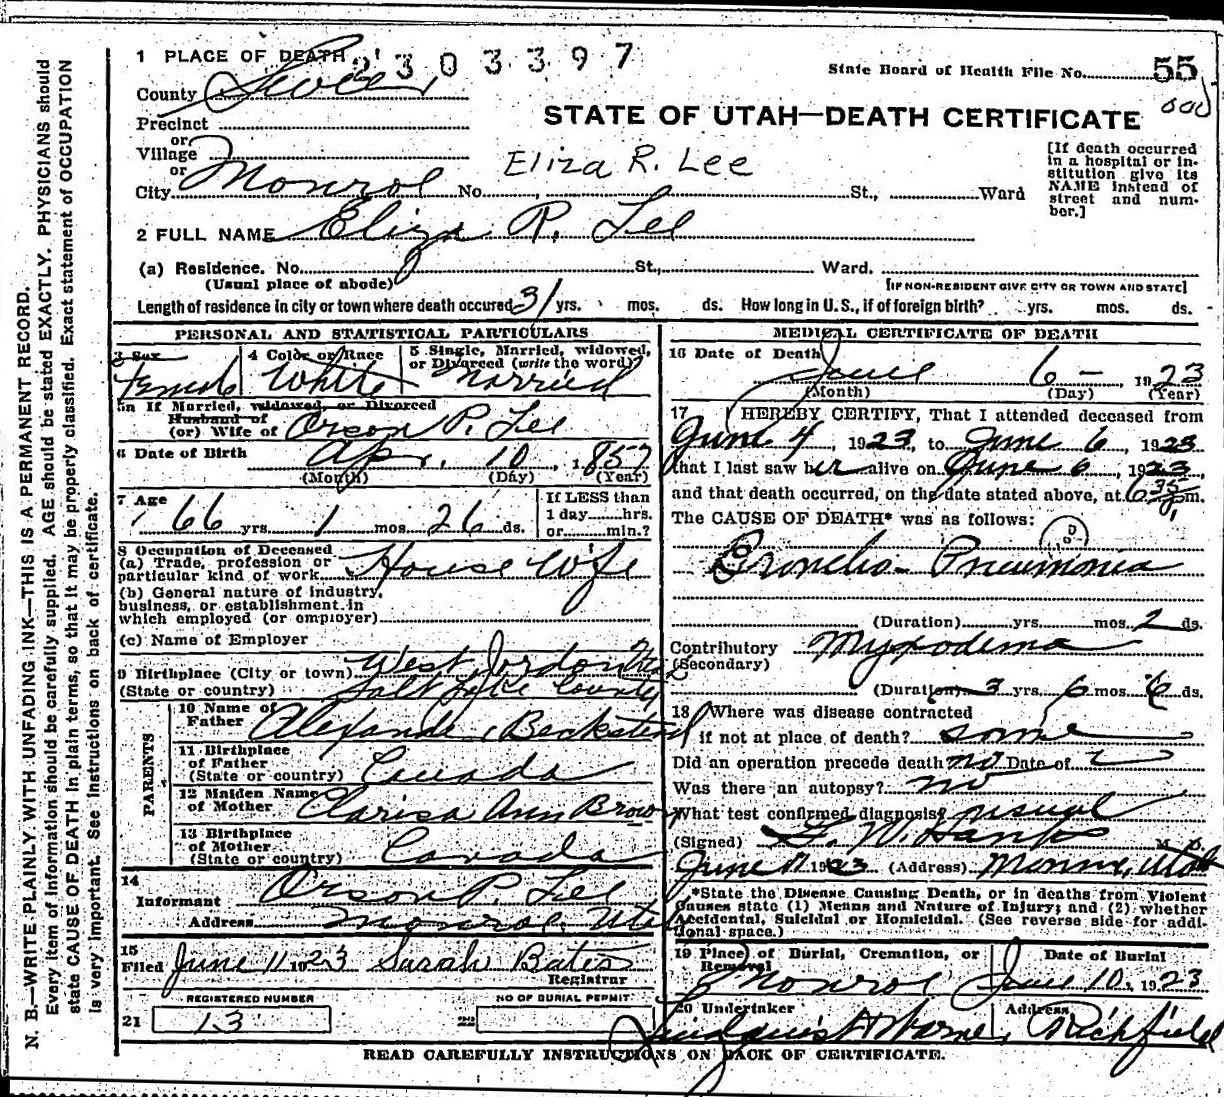 1 PLACE OF DEATH 2303397
State Board of Health File No. 55
County Sevier
STATE OF UTAH—DEATH CERTIFICATE
Precinct
or
Village
or
City Monroe No. St., Ward
Eliza R. Lee
[If death occurred
in a hospital or in-
stitution give its
NAME instead of
street and num-
ber.]
2 FULL NAME Eliza R. Lee
(a) Residence. No. St., Ward.
(Usual place of abode) [IF NON-RESIDENT GIVE CITY OR TOWN AND STATE]
Length of residence in city or town where death occured 31 yrs. mos. ds. How long in U. S., if of foreign birth? yrs. mos. ds.
PERSONAL AND STATISTICAL PARTICULARS
3 Sex
Female
4 Color or Race
White
5 Single, Married, widowed,
or Divorced (write the word)
Married
5a If Married, widowed, or Divorced
Husband of
(or) Wife of Orson P. Lee
6 Date of Birth Apr. 10, 1857
(Month) (Day) (Year)
7 Age
66 yrs. 1 mos. 26 ds.
If LESS than
1 day hrs.
or min.?
8 Occupation of Deceased
(a) Trade, profession or
particular kind of work House Wife
(b) General nature of industry,
business, or establishment in
which employed (or employer)
(c) Name of Employer
9 Birthplace (City or town) West Jordon Uta
(State or country) Salt Lake County
PARENTS
10 Name of
Father Alexander Beckstead
11 Birthplace
of Father
(State or country) Canada
12 Maiden Name
of Mother Clarisa Ann Brown
13 Birthplace
of Mother
(State or country) Canada
14
Informant Orson P. Lee
Address Monroe Utah
15
Filed June 11 1923 Sarah Bates
Registrar
REGISTERED NUMBER
21 13
NO OF BURIAL PERMIT
22
MEDICAL CERTIFICATE OF DEATH
16 Date of Death
June 6 - , 1923
(Month) (Day) (Year)
17 I HEREBY CERTIFY, That I attended deceased from
June 4, 1923, to June 6, 1923
that I last saw her alive on June 6, 1923,
and that death occurred, on the date stated above, at 6 35 p.m.
The CAUSE OF DEATH* was as follows:
Broncho- Pneumonia
(Duration) yrs. mos. 2 ds.
Contributory Myxodema
(Secondary)
(Duration) 3 yrs. 6 mos. 6 ds.
18 Where was disease contracted
if not at place of death? same
Did an operation precede death no Date of
Was there an autopsy? no
What test confirmed diagnosis? usual
(Signed) M. D.
June 1923 (Address) Monroe, Utah
*State the Disease Causing Death, or in deaths from Violent
Causes state (1) Means and Nature of Injury; and (2) whether
Accidental, Suicidal or Homicidal. (See reverse side for addi-
tional space.)
19 Place of Burial, Cremation, or
Removal
Monroe
Date of Burial
June 10, 1923
20 Undertaker
Address
Richfield
READ CAREFULLY INSTRUCTIONS ON BACK OF CERTIFICATE.
N. B.—WRITE PLAINLY WITH UNFADING INK—THIS IS A PERMANENT RECORD.
Every item of information should be carefully supplied. AGE should be stated EXACTLY. PHYSICIANS should
state CAUSE OF DEATH in plain terms, so that it may be properly classified. Exact statement of OCCUPATION
is very important. See instructions on back of certificate.